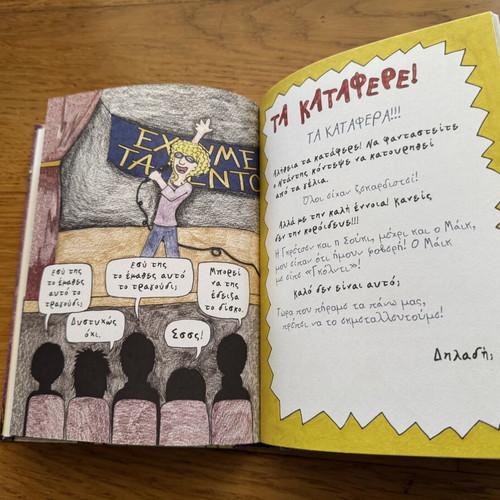 ΕΧΟΥΜΕ
ΤΑΛΕΝΤΟ
Εσύ της
το έμαθες αυτό
το τραγούδι;
Εσύ της
το έμαθες αυτό
το τραγούδι;
Μπορεί
να της
έδειξα
το δίσκο.
Δυστυχώς
όχι.
Σσσς!
ΤΑ ΚΑΤΑΦΕΡΕ!
ΤΑ ΚΑΤΑΦΕΡΑ!!!
Αλήθεια τα κατάφερε! Να φανταστείτε
ο Ντάντης κόντεψε να κατουρηθεί
από τα γέλια.
Όλοι είχαν ξεκαρδιστεί!
Αλλά με την καλή έννοια! κανείς
δεν την κορόιδευε!!!
Η Γκρέτσεν και η Σούκι, μέχρι και ο Μάικ,
μου είπαν ότι ήμουν φοβερή! Ο Μάικ
με είπε «Γκόλντι»!
Καλό δεν είναι αυτό;
Τώρα που πήραμε τα πάνω μας,
πρέπει να το εκμεταλλευτούμε!
Δηλαδή;